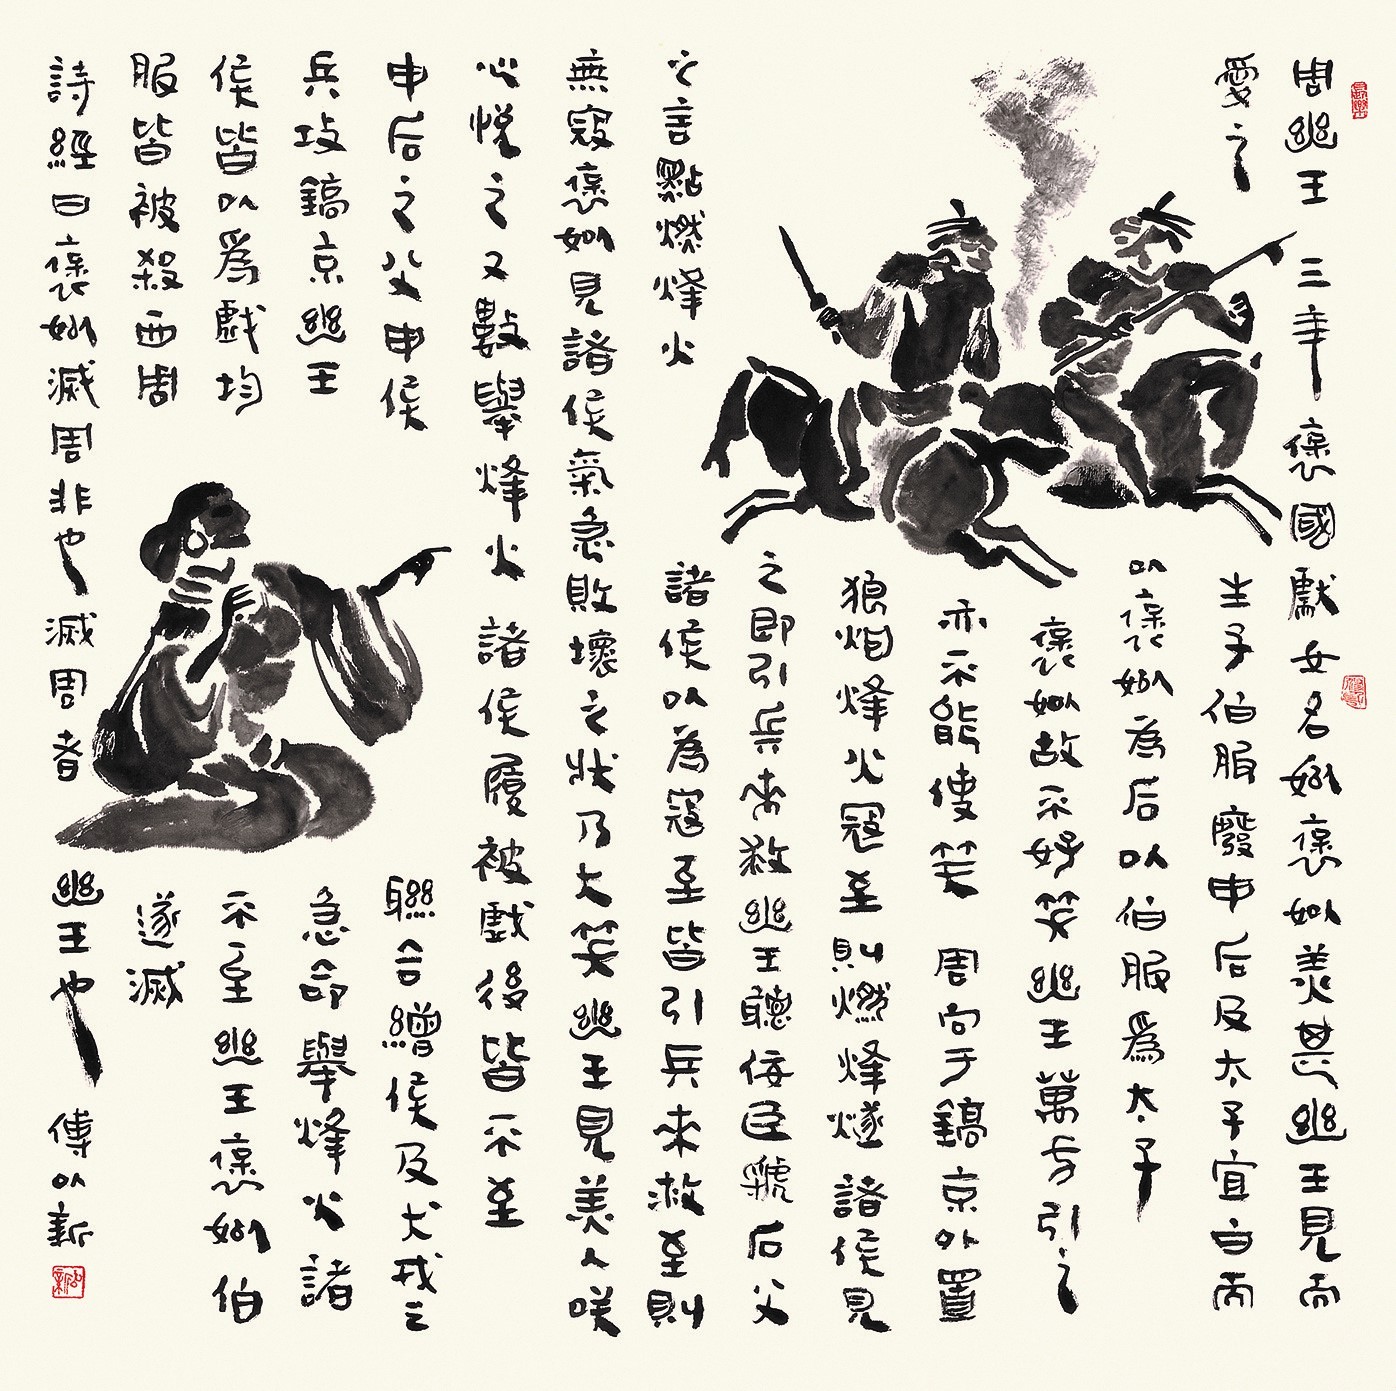 周幽王三年褒國獻女名姒褒姒美甚幽王見而
愛之生子伯服廢申后及太子宜臼而
以褒姒為后以伯服爲太子
褒姒故不好笑幽王萬方引之
亦不能使笑周向于鎬京外置
狼烟烽火寇至則燃烽燧諸侯見
之即引兵來救幽王聽佞臣虢后父
之言點燃烽火諸侯以為寇至皆引兵來救至則
無寇褒姒見諸侯氣急敗壞之狀乃大笑幽王見美人咲
心悅之又數舉烽火諸侯屢被戲後皆不至
申后之父申侯聯合繒侯及犬戎之
兵攻鎬京幽王急命舉烽火諸
侯皆以爲戲均不至幽王褒姒伯
服皆被殺西周遂滅
詩經曰褒姒滅周非也滅周者幽王也傅以新